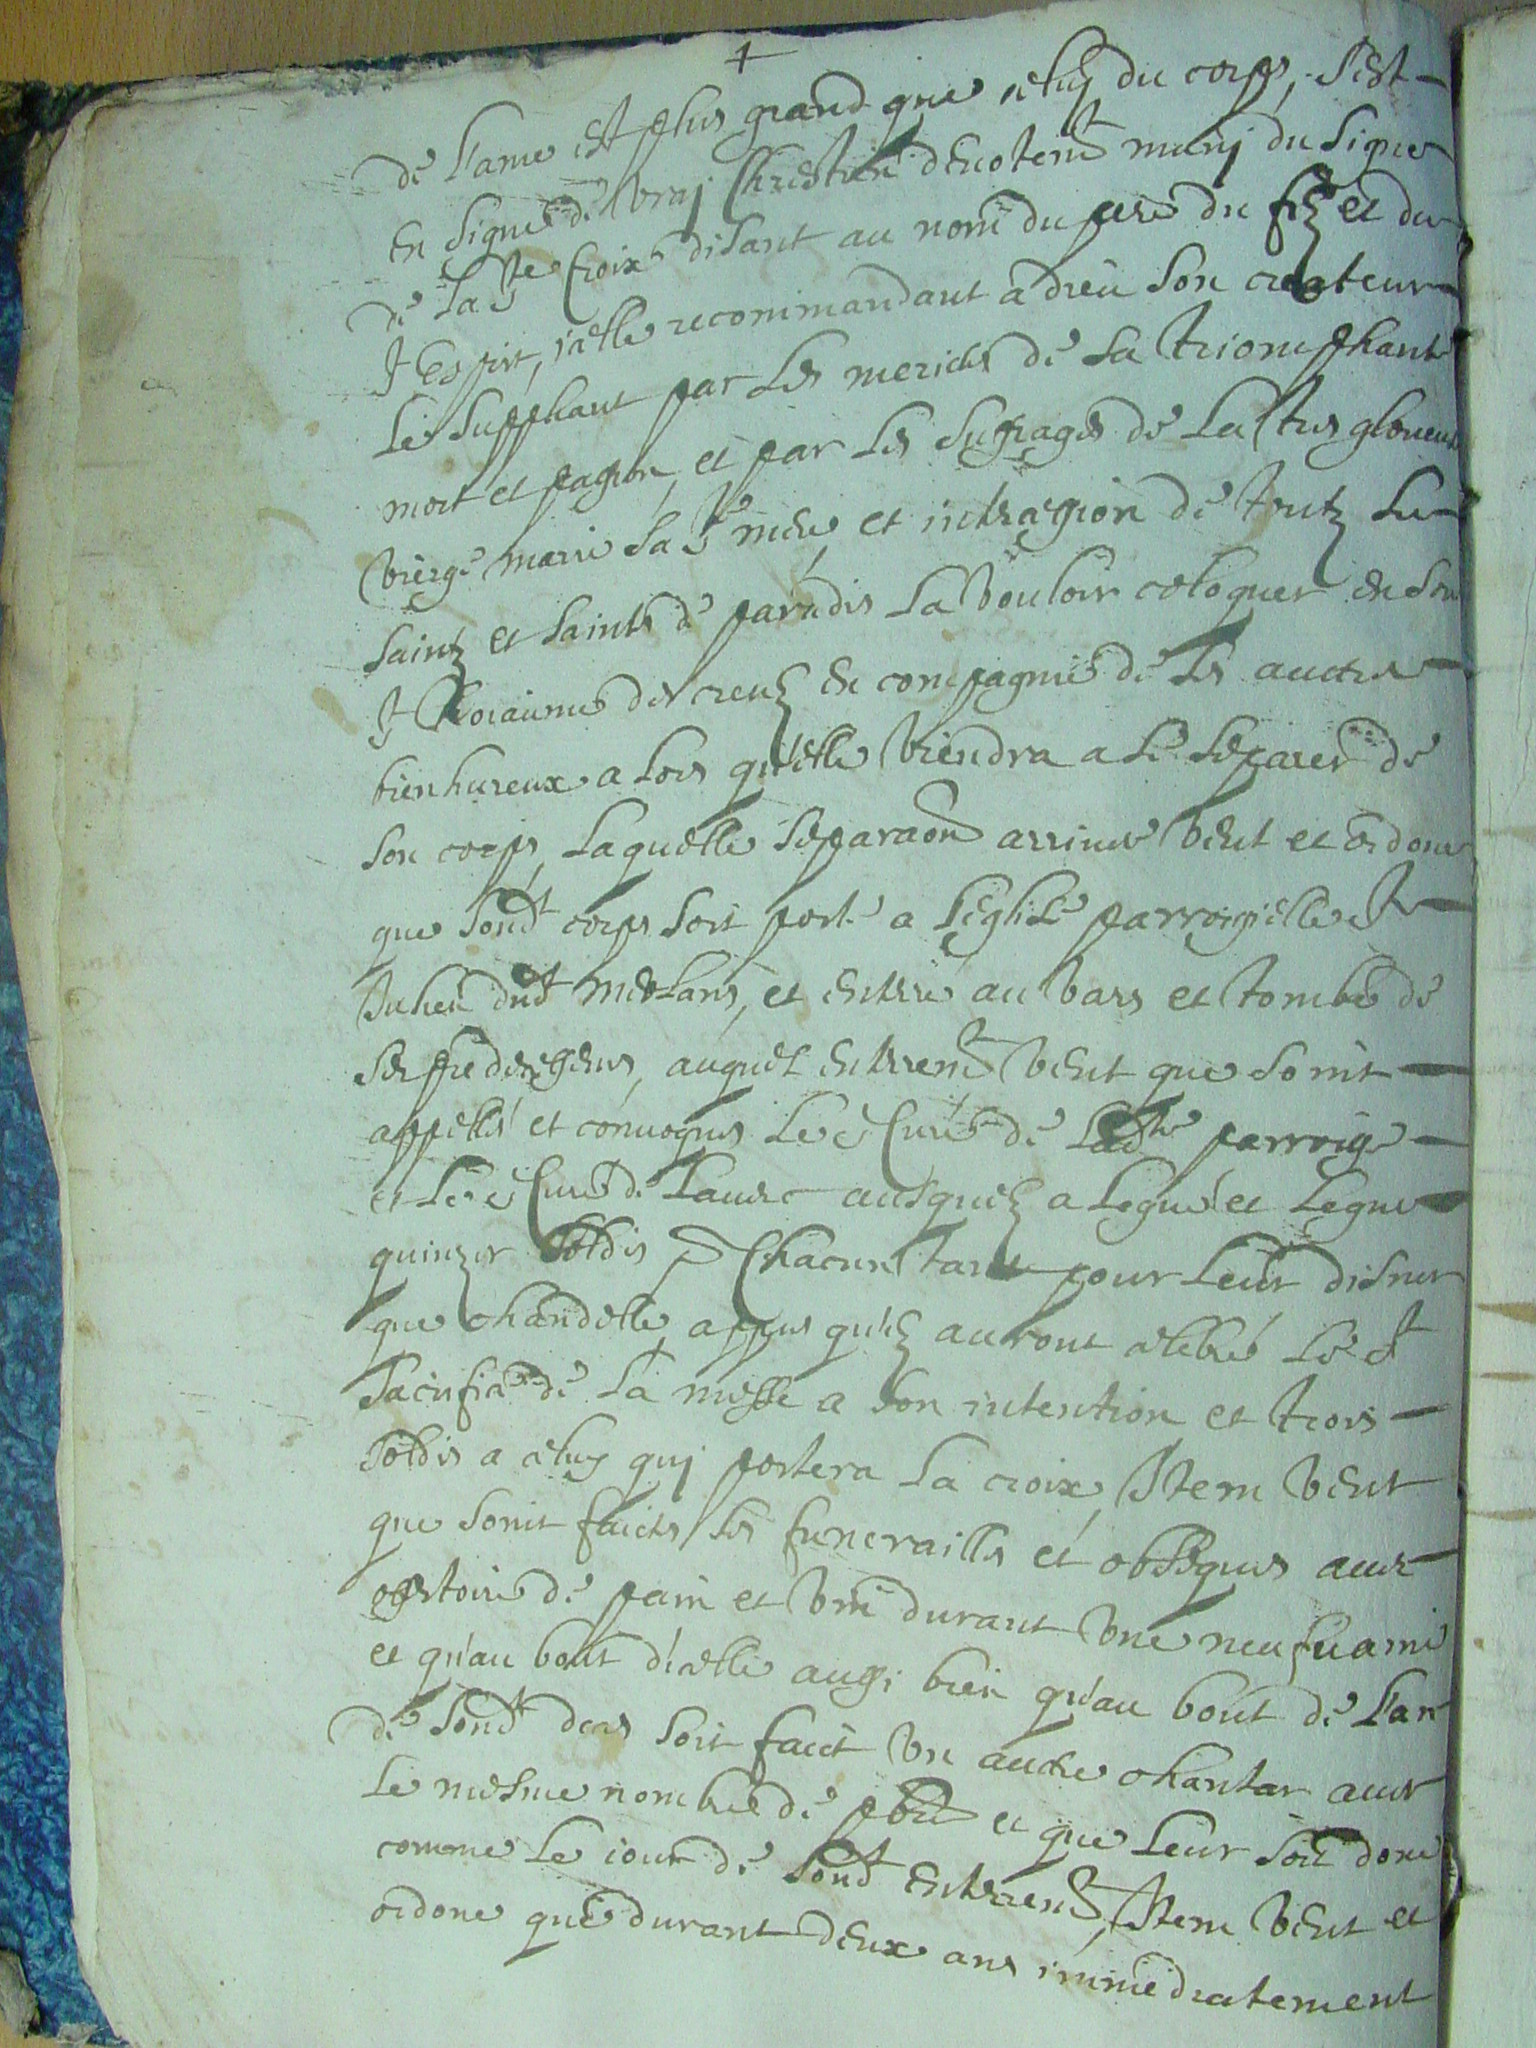 +
de l'ame est plus grand que celuy du corps, s'est
en signe de vraj Chrestien devotemt munj du signe
de la ste Croix disant au nom du pere du filz et du
st Esprit, icelle recommandant a dieu son createur
le suppliant par les merictes de sa triomphante
mort et passion, et par les sufrages de la tres glorieuse
vierge marie sa ste mere, et intercession de toutz les
saintz et saintes de paradis la vouloir coloquer en son
st Roiaume des cieuz en compagnie de les autres
bienhureux a lors qu'elle viendra a se separer de
son corps, laquelle separaon arrivee veut et ordone
que sondt corps soit porté a l'eglise parroissielle St
Julien dudt meslans, et enterré au vars et tombe de
ses predecesseurs, auquel enterremt veut que soint
appellés et convoqués le sr Curé de ladte parroisse
et le sr Curé de Laurs ausquelz a legué et legue
quinze soldis p chacun tant pour leur disner
que chandelle, appres qu'ilz auront celebré le st
sacrifice de la messe a son intention et trois
soldis a celuy quj portera la croix, Item veut
que soint faictes ses funerailles et obseques avec
offertoire de pain et vin durant une neufvaine
et qu'au bout d'icelle aussi bien qu'au bout de l'an
de sondt deces soit faict un autre chantar avec
le mesme nombre de pbres et que leur soit doné
comme le iour de sondt enterremt, Item veut et
ordone que durant deux ans immediatement